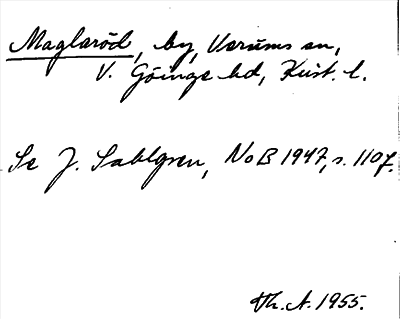 Maglaröd, by, Verums sn,
V. Göinge hd, Krist. l.
Se J. Sahlgren, NoB 1947, s. 110 f.
Th. A. 1955.